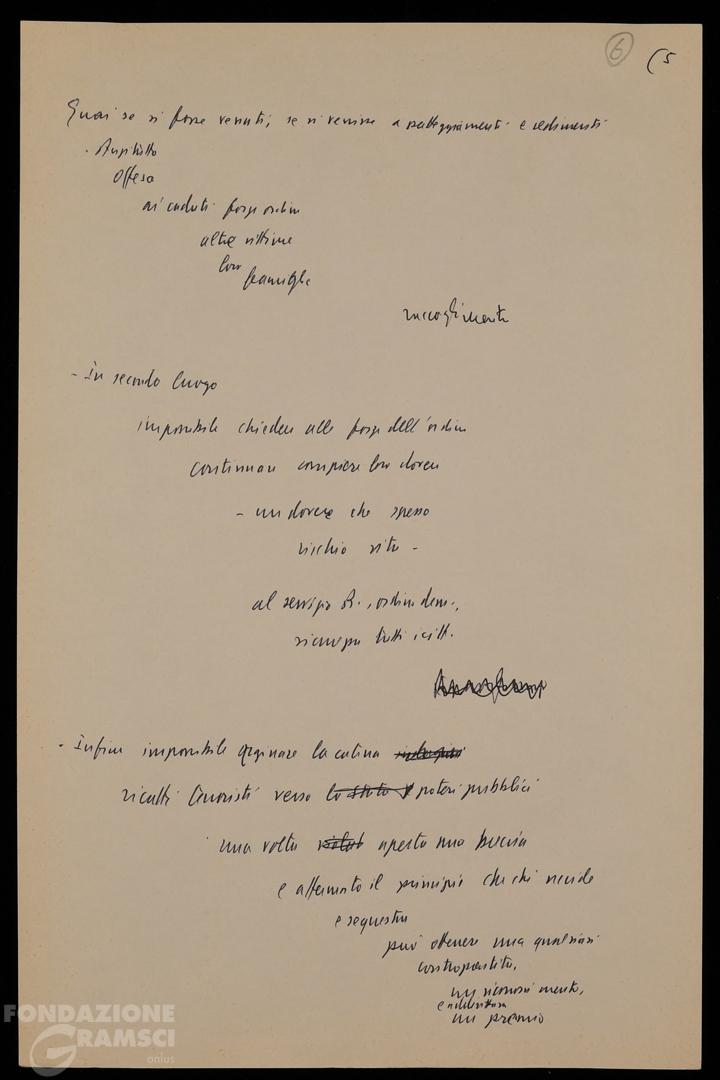 6 (5
Guai se si fosse venuti, se si venisse a patteggiamenti e cedimenti
- Anzitutto
offesa
ai caduti forze ordine
altre vittime
loro
famiglie
raccoglimento
- In secondo luogo
impossibile chiedere alle forze dell'ordine
continuare compiere loro dovere
- un dovere che spesso
rischio vita -
al servizio R., ordine dem.,
sicurezza tutti i citt.
- Infine impossibile arginare la catena
ricatti terroristi verso lo Stato poteri pubblici
una volta aperta una breccia
e affermato il principio che chi uccide
e sequestra
può ottenere una qualsiasi
contropartita,
un riconoscimento,
e addirittura
un premio
FONDAZIONE
GRAMSCI
onlus